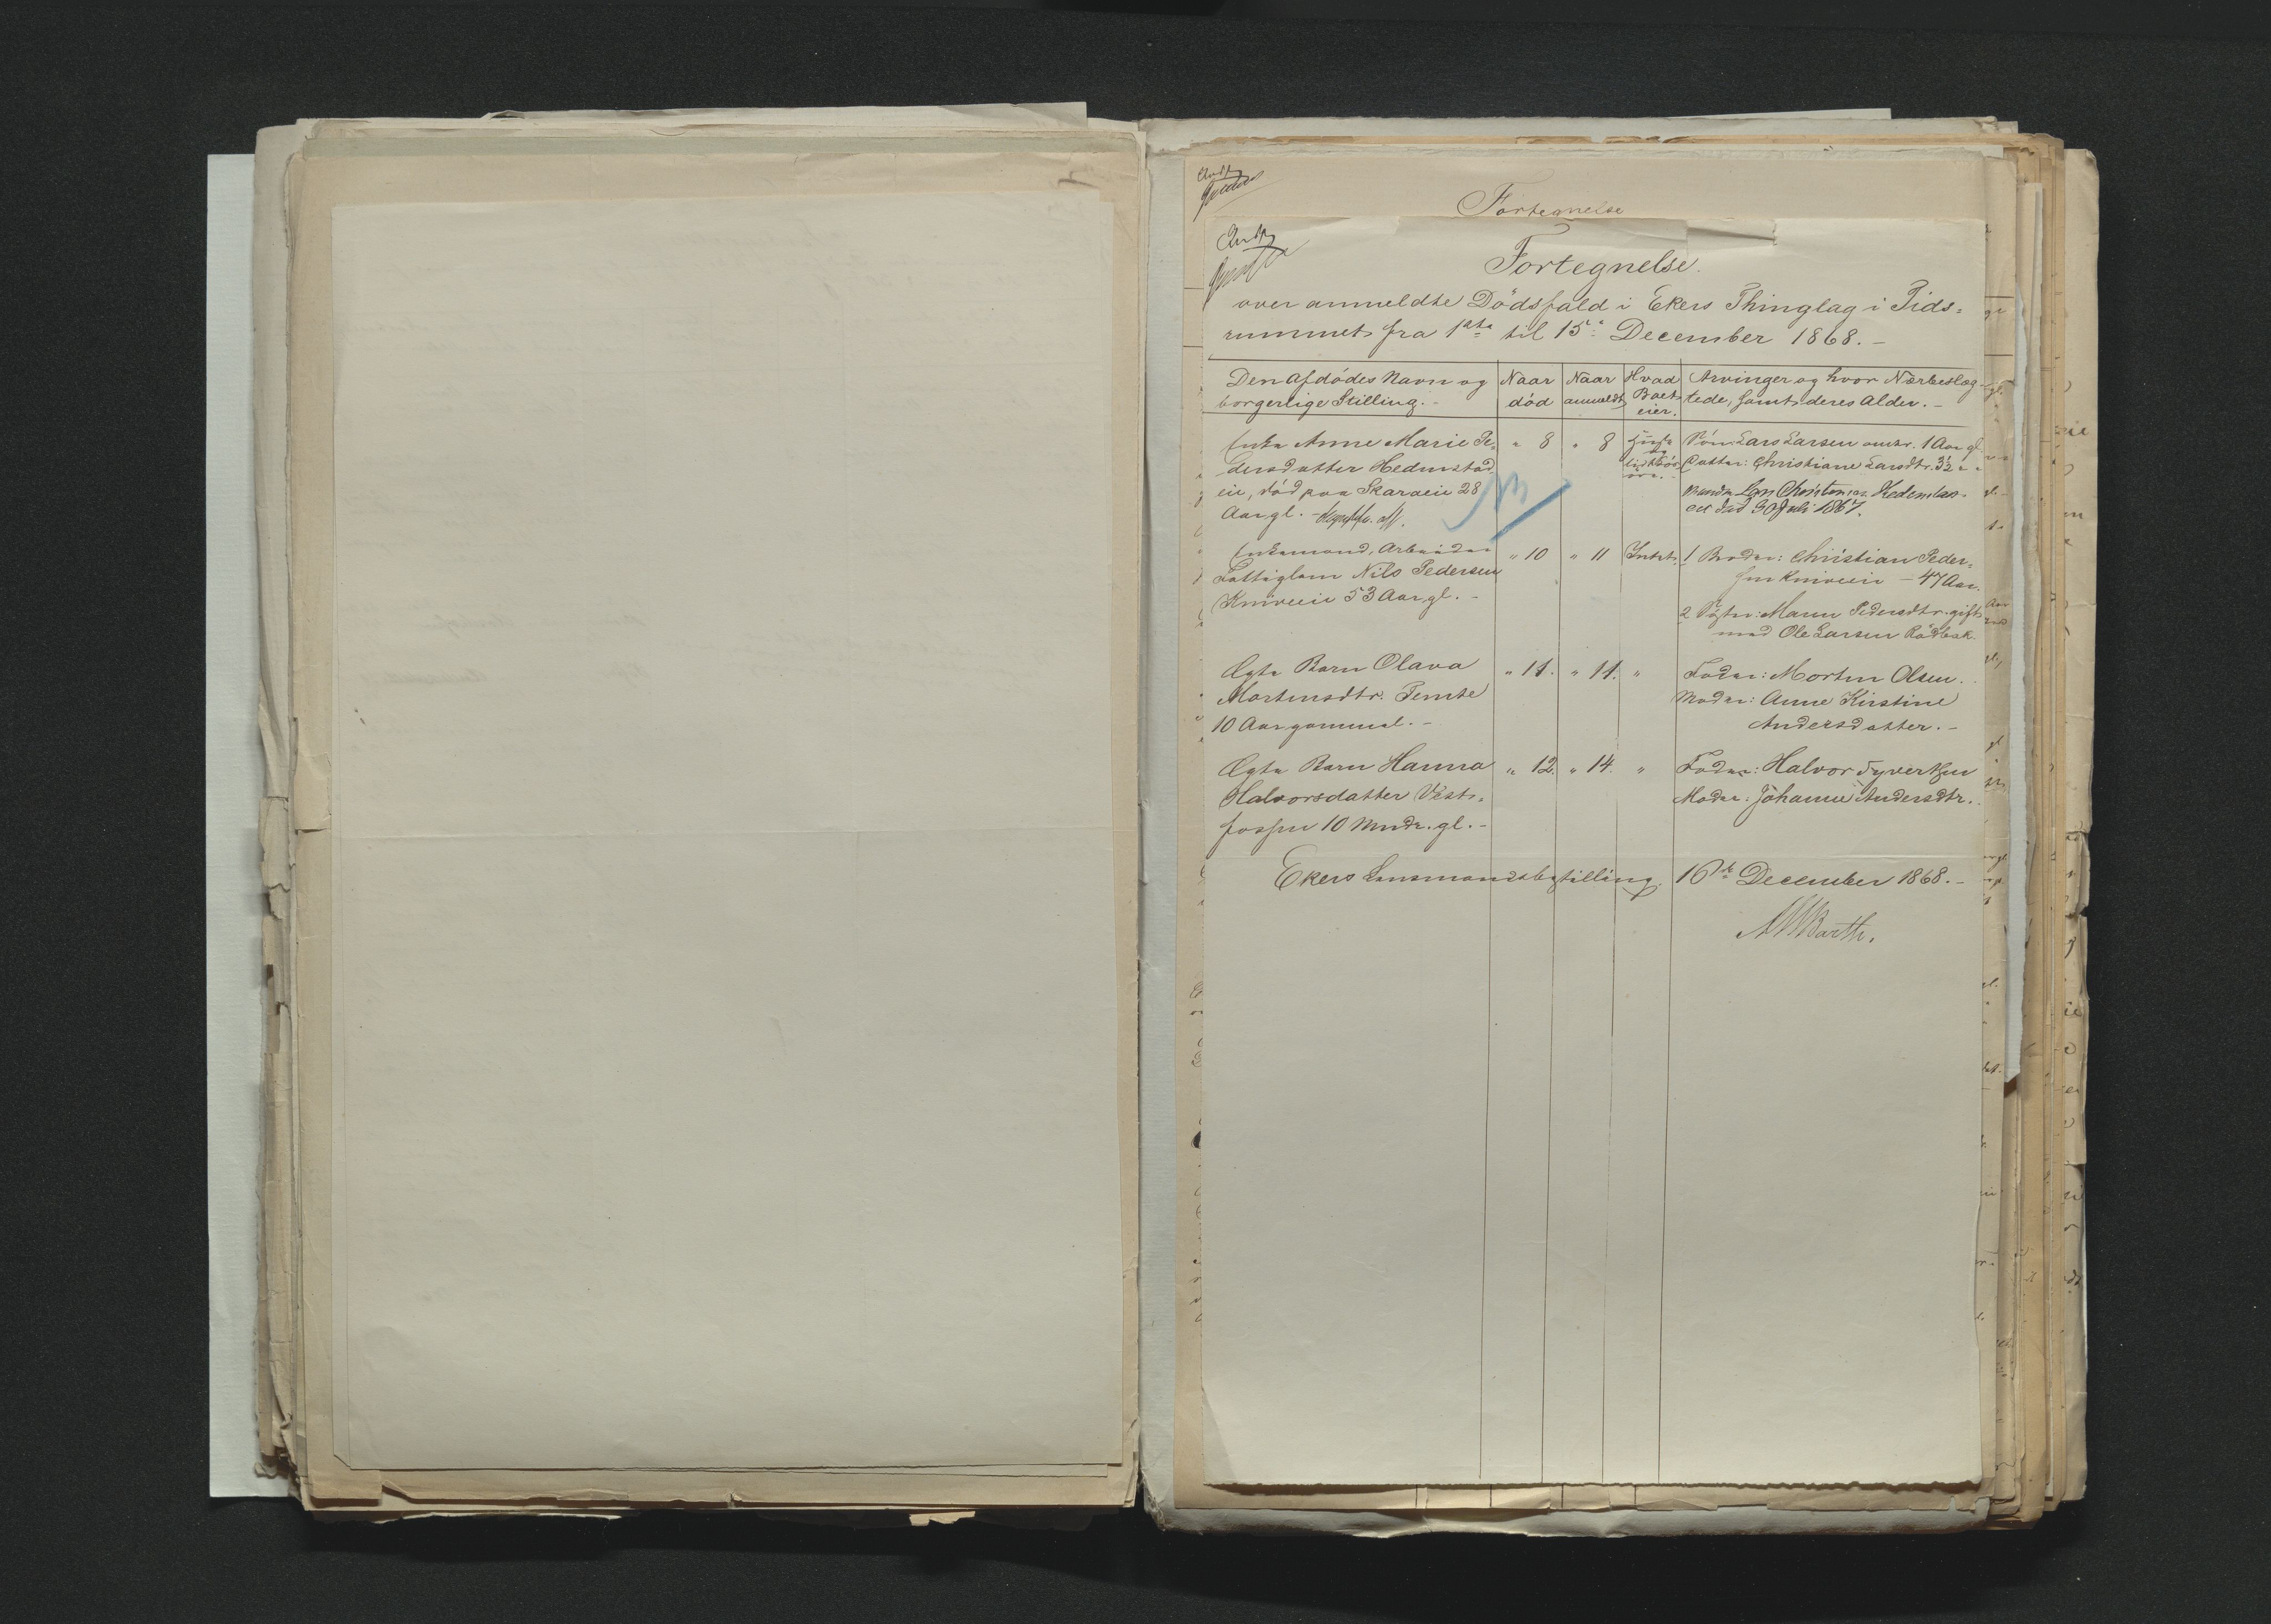 Fortegnelse
Fortegnelse.
over anmeldte Dödsfald i Ekers Thinglag i Tids-
rummet fra 1ste til 15de December 1868. -
Den afdödes Navn og
borgerlige Stilling. -
Naar
död
Naar
anmeldt
Hvad
Boet
eier.
Arvinger og hvor Nærbeslæg-
tede, samt deres Alder. -
Enke Anne Marie Pe-
dersdatter Hedenstad
eie, död paa Skaraeie 28
Aar gl. -
" 8
" 8
Sön: Lars Larsen omtr. 1 Aar gl.
Datter: Christiane Larsdtr. 3½ " "
Manden Lars Christensen Hedenstad-
eie död 30 Juli 1867.
Enkemand, Arbeider
Fattiglem Nils Pedersen
Kniveeie 53 Aar gl. -
" 10
" 11
Intet.
1 Broder: Christian Peder-
sen Kniveeie - 47 Aar.
2 Söster: Maren Pedersdtr. gift
med Ole Larsen Rödbak.
Ægte Barn Olava
Mortensdtr. Temte
10 Aar gammel. -
" 11.
" 11.
"
Fader: Morten Olsen.
Moder: Anne Kirstine
Andersdatter. -
Ægte Barn Hanna
Halvorsdatter Vest-
fossen 10 Mndr. gl. -
" 12.
" 14.
"
Fader: Halvor Syvertsen
Moder: Johanne Andersdtr.
Ekers Lensmandsbestilling 16de December 1868. -
Barth.